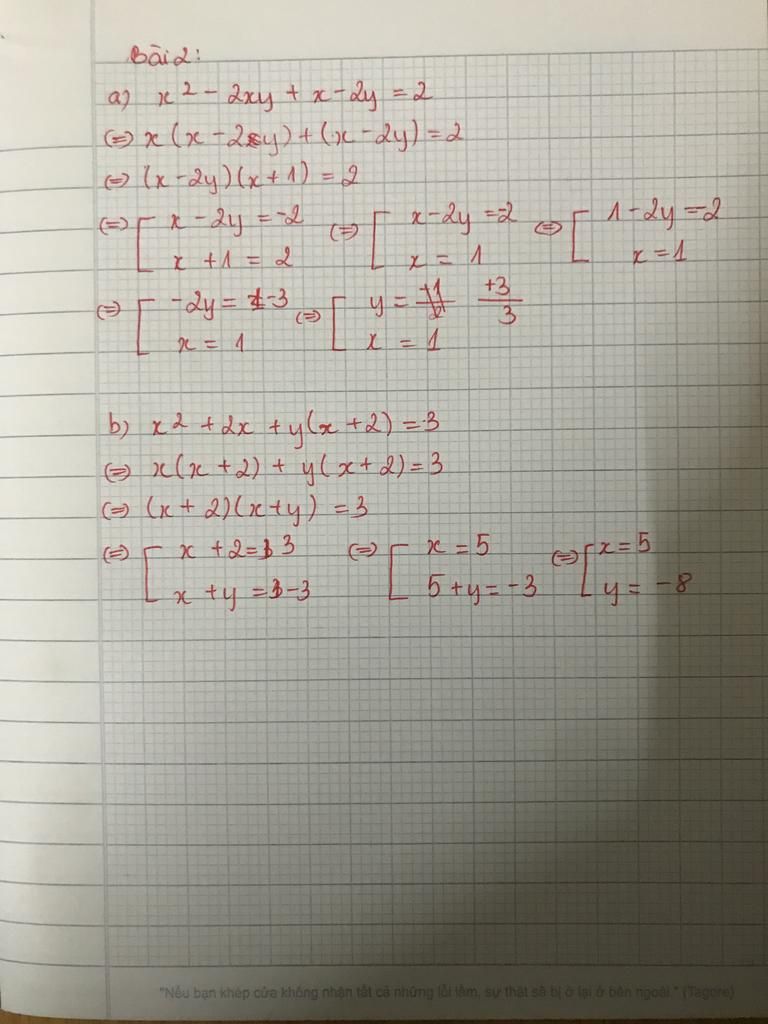 Bài 2:
a) x² - 2xy + x - 2y = 2
⇔ x(x - 2y) + (x - 2y) = 2
⇔ (x - 2y)(x + 1) = 2
⇔ [ x - 2y = -2 ⇔ [ x - 2y = -2 ⇔ [ 1 - 2y = -2
x + 1 = 2 x = 1 x = 1
⇔ [ -2y = -3 ⇔ [ y = +3/3
x = 1 x = 1
b) x² + 2x + y(x + 2) = 3
⇔ x(x + 2) + y(x + 2) = 3
⇔ (x + 2)(x + y) = 3
⇔ [ x + 2 = 3 ⇔ [ x = 5 ⇔ [ x = 5
x + y = -3 5 + y = -3 y = -8
"Nếu bạn khép cửa không nhận tất cả những lỗi lầm, sự thật sẽ bị ở lại ở bên ngoài." (Tagore)